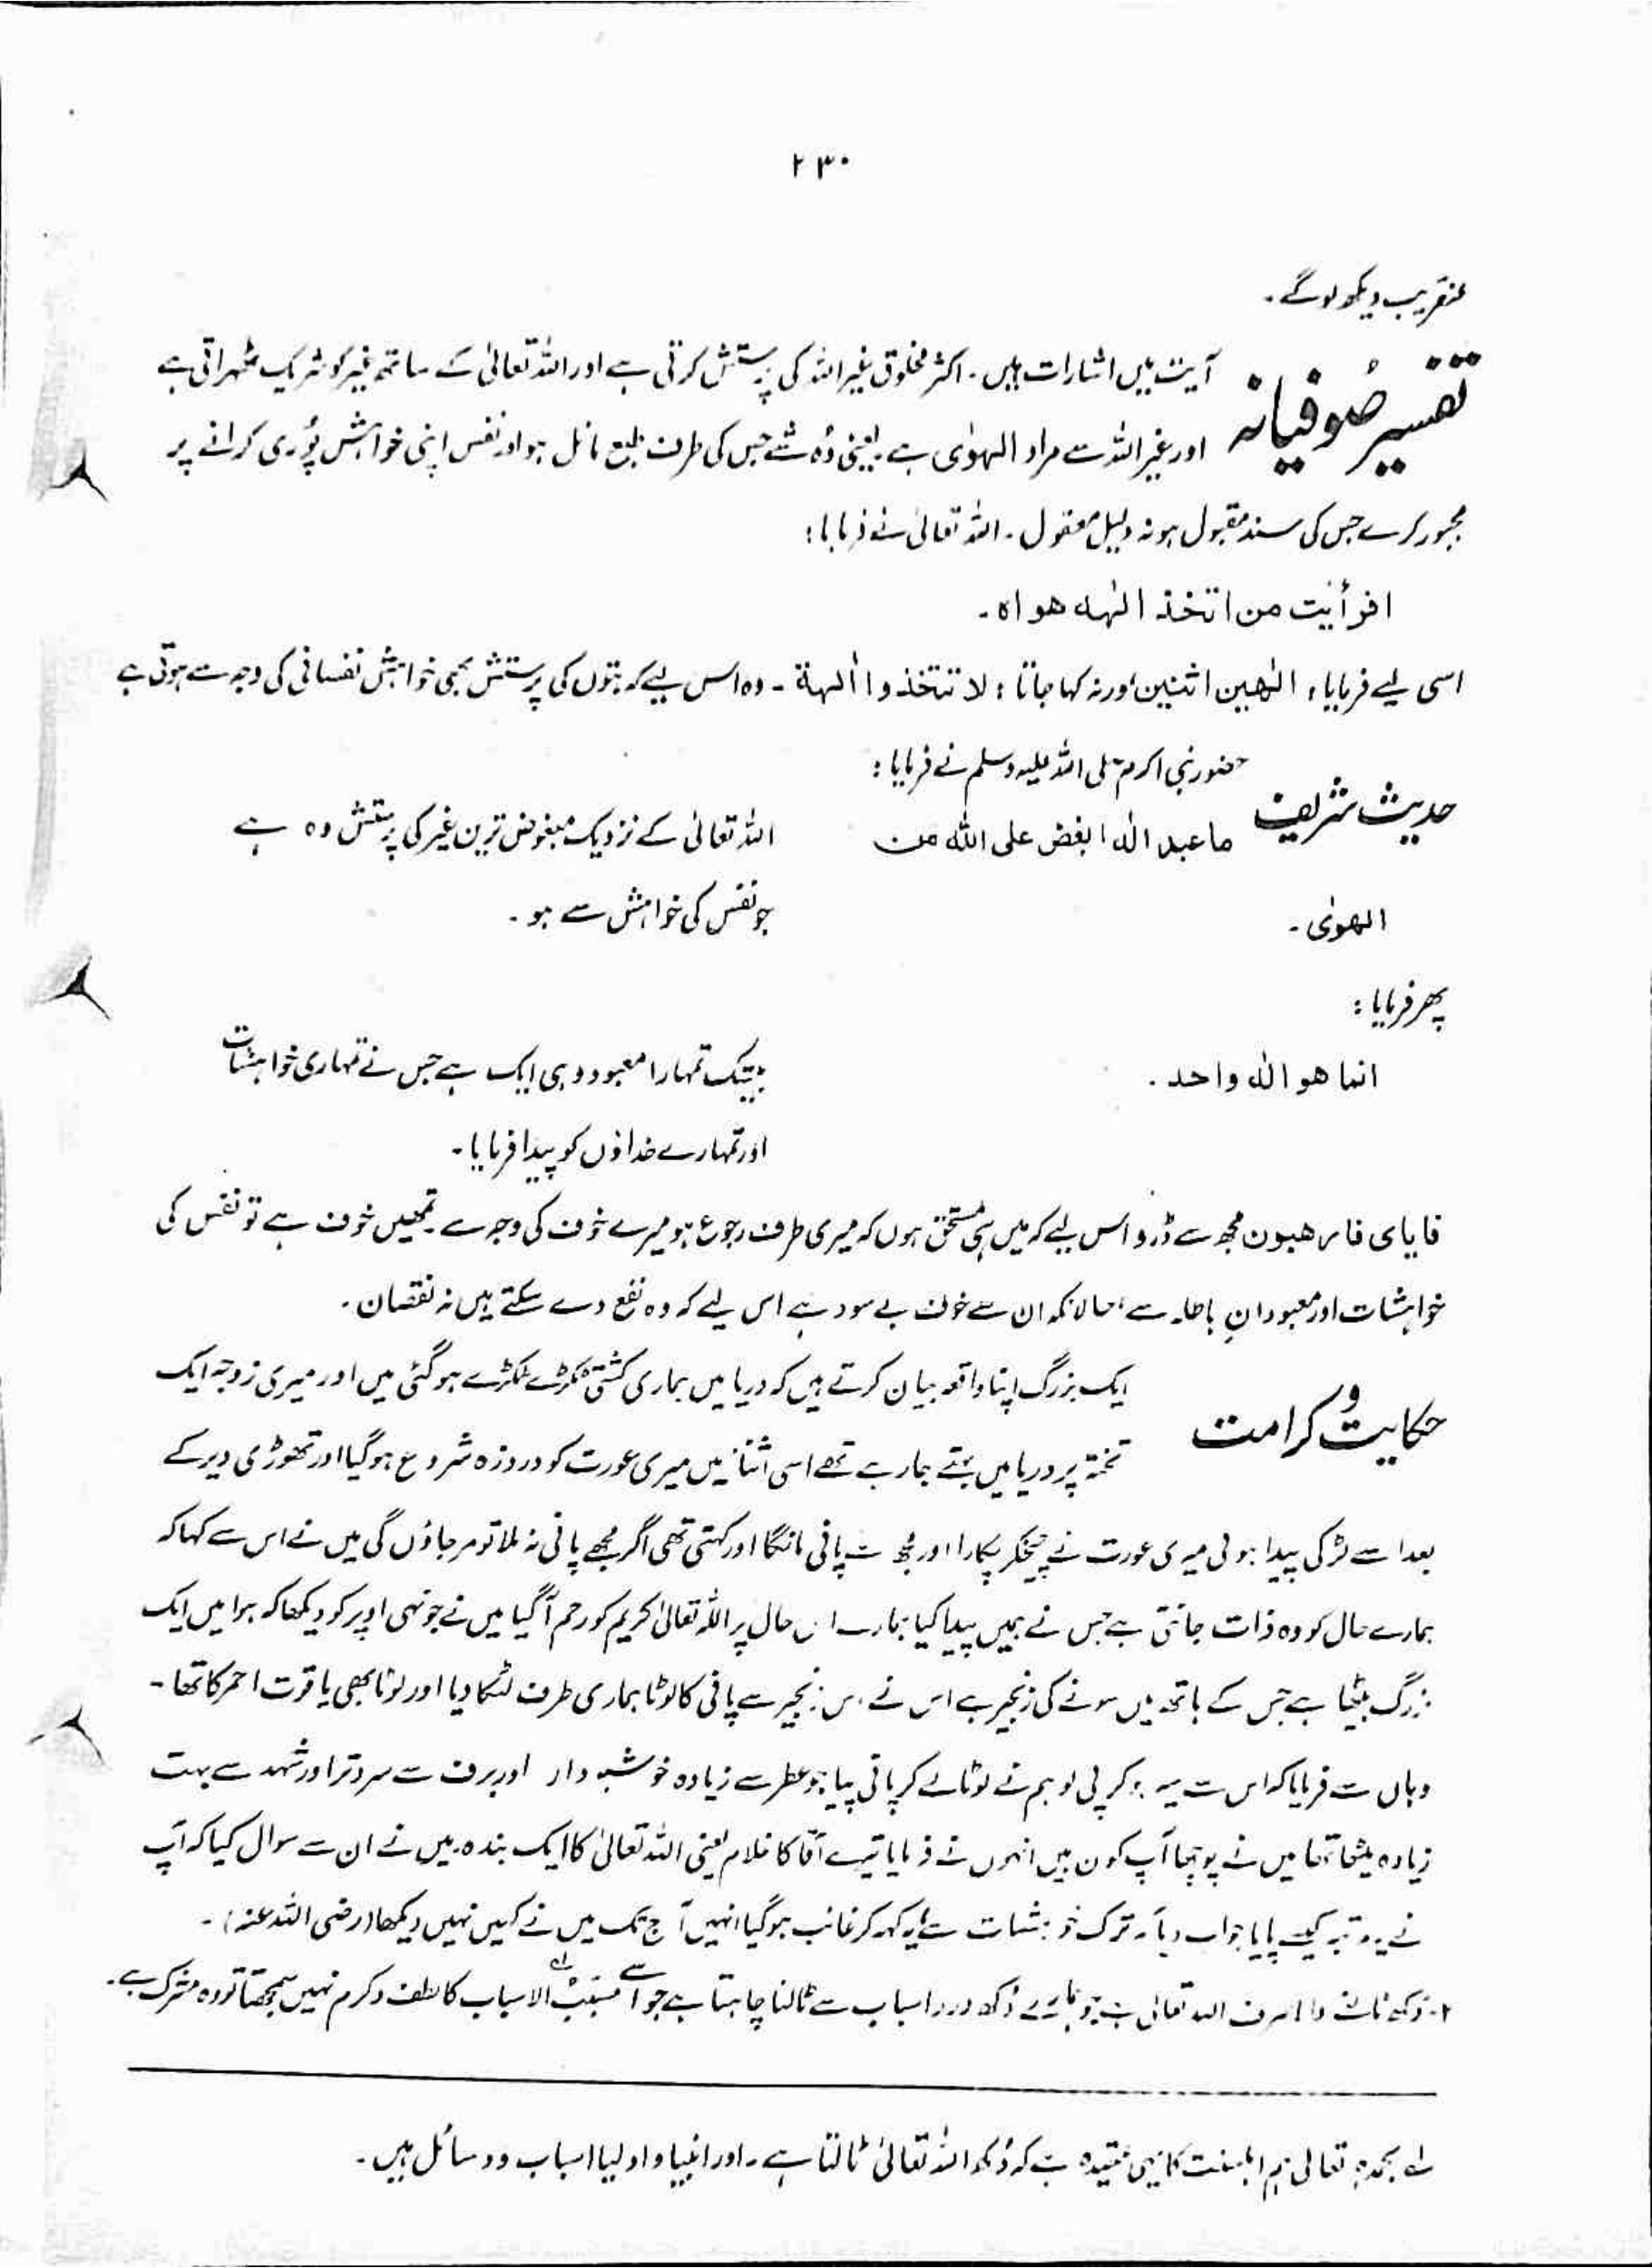 ۲۳۰
عنقریب دیکھ لوگے۔
تفسیر صُوفیانہ
آیت میں اشارات ہیں۔ اکثر مخلوق غیر اللہ کی پرستش کرتی ہے اور اللہ تعالیٰ کے ساتھ غیر کو شریک ٹھہراتی ہے
اور غیر اللہ سے مراد الہوٰی ہے یعنی وُہ شے جس کی طرف طبع مائل ہو اور نفس اپنی خواہش پُوری کرانے پر
مجبور کرے جس کی سند مقبول ہو نہ دلیل معقول۔ اللہ تعالیٰ نے فرمایا:
افرأیت من اتخذ الٰہہ ھواہ۔
اسی لیے فرمایا، الٰھین اثنین اور نہ کہا جاتا: لا تتخذوا اٰلہة۔ وہ اس لیے کہ بتوں کی پرستش بھی خواہش نفسانی کی وجہ سے ہوتی ہے
حدیث شریف
حضور نبی اکرم صلی اللہ علیہ وسلم نے فرمایا:
ما عبد الٰہ ابغض علی اللہ من اللہ تعالیٰ کے نزدیک مبغوض ترین غیر کی پرستش وہ ہے
الھوٰی۔ جو نفس کی خواہش سے ہو۔
پھر فرمایا:
انما ھو الٰہ واحد۔ بیشک تمہارا معبود وہی ایک ہے جس نے تمہاری خواہشات
اور تمہارے خداؤں کو پیدا فرمایا۔
فایای فارھبون مجھ سے ڈرو اس لیے کہ میں ہی مستحق ہوں کہ میری طرف رجوع ہو میرے خوف کی وجہ سے۔ تمھیں خوف ہے تو نفس کی
خواہشات اور معبودانِ باطلہ سے، حالانکہ ان سے خوف بے سود ہے اس لیے کہ وہ نفع دے سکتے ہیں نہ نقصان۔
حکایت و کرامت
ایک بزرگ اپنا واقعہ بیان کرتے ہیں کہ دریا میں ہماری کشتی ٹکڑے ٹکڑے ہوگئی میں اور میری زوجہ ایک
تختہ پر دریا میں بہتے جا رہے تھے اسی اثنا میں میری عورت کو دردِ زہ شروع ہوگیا اور تھوڑی دیر کے
بعد اسے لڑکی پیدا ہوئی میری عورت نے چیخکر پکارا اور مجھ سے پانی مانگا اور کہتی تھی اگر مجھے پانی نہ ملا تو مر جاؤں گی میں نے اس سے کہا کہ
ہمارے حال کو وہ ذات جانتی ہے جس نے ہمیں پیدا کیا ہمارے اس حال پر اللہ تعالیٰ کریم کو رحم آگیا میں نے جونہی اوپر کو دیکھا کہ ہوا میں ایک
بزرگ بیٹھا ہے جس کے ہاتھ میں سونے کی زنجیر ہے اس نے اس زنجیر سے پانی کا لوٹا ہماری طرف لٹکا دیا اور لوٹا بھی یاقوت احمر کا تھا۔
وہاں سے فرمایا کہ اس سے سیر ہو کر پی لو ہم نے لوٹا لے کر پانی پیا جو عطر سے زیادہ خوشبودار اور برف سے سرد تر اور شہد سے بہت
زیادہ میٹھا تھا میں نے پوچھا آپ کون ہیں انہوں نے فرمایا تیرے آقا کا غلام یعنی اللہ تعالیٰ کا ایک بندہ۔ میں نے ان سے سوال کیا کہ آپ
نے یہ مرتبہ کیسے پایا جواب دیا کہ ترک خواہشات سے، یہ کہہ کر غائب ہوگیا انہیں آج تک میں نے کہیں نہیں دیکھا (رضی اللہ عنہ)۔
۲۔ دکھ ٹالنے والا صرف اللہ تعالیٰ ہے جو ہمارے دکھ درد اسباب سے ٹالنا چاہتا ہے جو اسے مسبّبُ الاسباب کا لطف و کرم نہیں سمجھتا تو وہ مشرک ہے۔
لے بحمدہٖ تعالیٰ ہم اہلسنت کا یہی عقیدہ ہے کہ دُکھ اللہ تعالیٰ ٹالتا ہے۔ اور انبیا و اولیا اسباب و وسائل ہیں۔